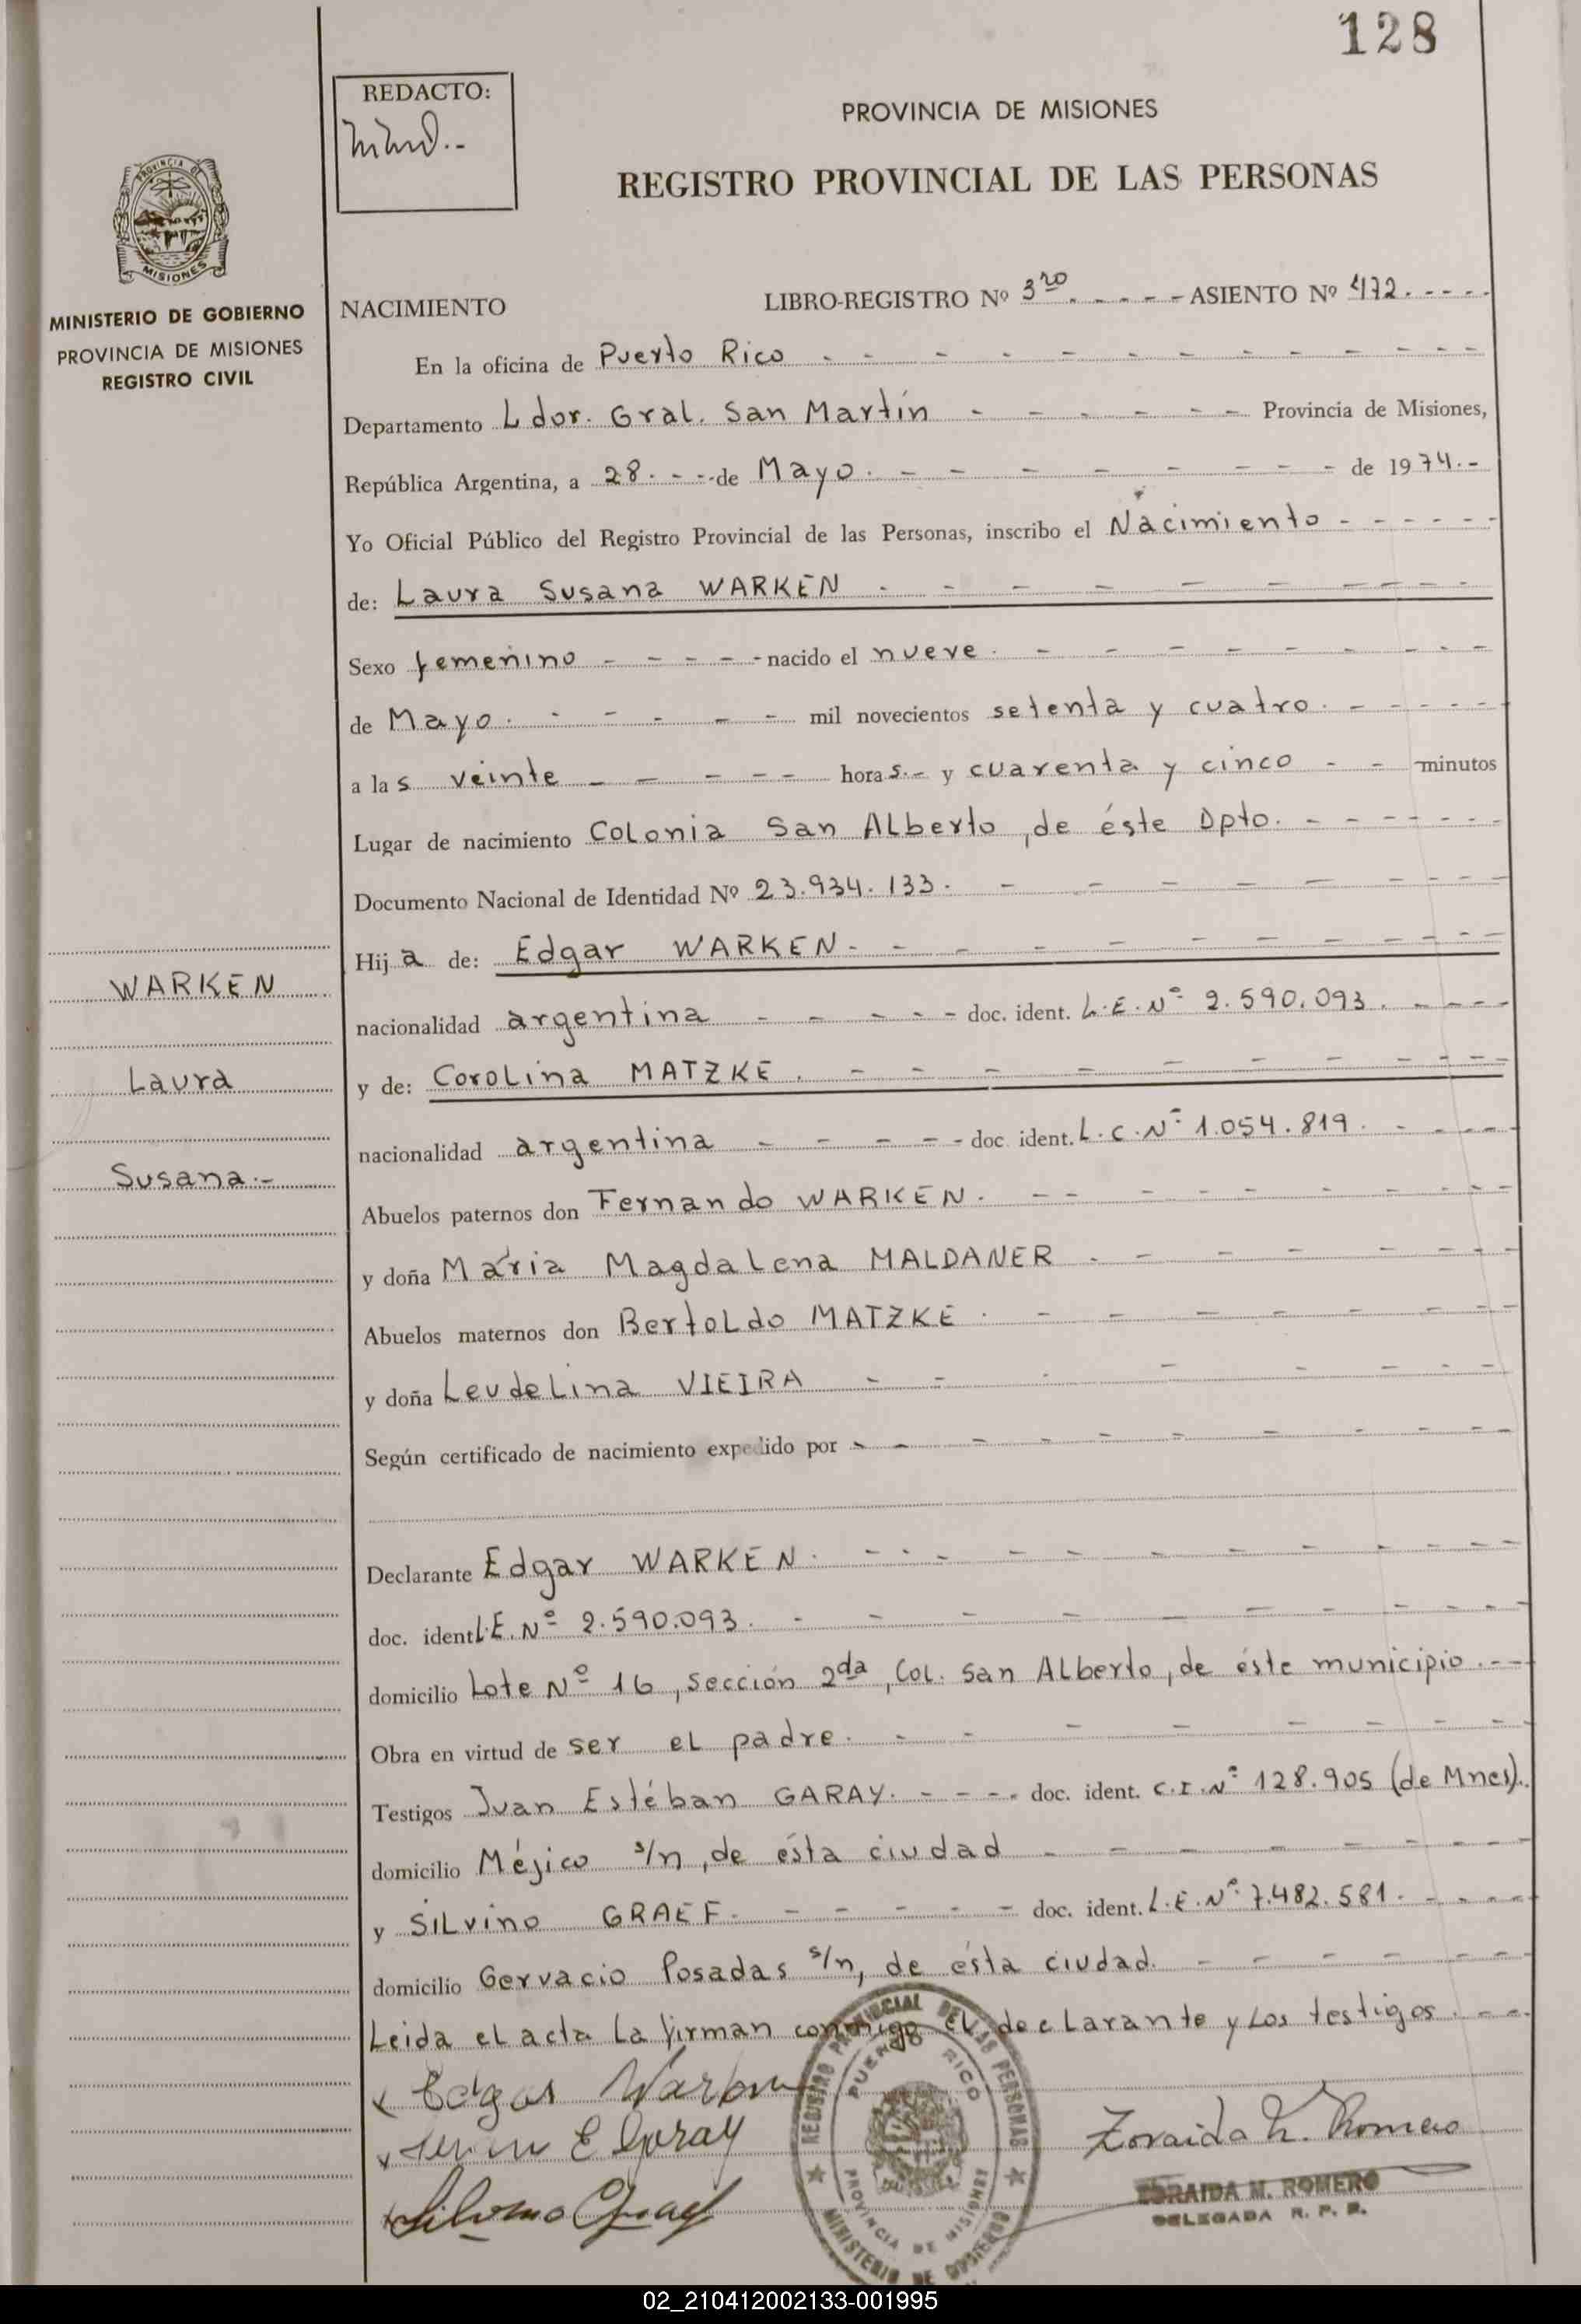 128
REDACTO:
PROVINCIA DE MISIONES
REGISTRO PROVINCIAL DE LAS PERSONAS
PROVINCIA DE
MISIONES
MINISTERIO DE GOBIERNO
PROVINCIA DE MISIONES
REGISTRO CIVIL
NACIMIENTO LIBRO-REGISTRO Nº 3ro. - - - - - ASIENTO Nº 472. - - - -
En la oficina de Puerto Rico - - - - - - - - - - -
Departamento Ldor. Gral. San Martín - - - - - - Provincia de Misiones,
República Argentina, a 28. - - - de Mayo. - - - - - - - - de 1974. -
Yo Oficial Público del Registro Provincial de las Personas, inscribo el Nacimiento - - - - - -
de: Laura Susana WARKEN - - - - - - - - - -
Sexo femenino - - - - - nacido el nueve. - - - - - - - - -
de Mayo. - - - - - mil novecientos setenta y cuatro. - - - - -
a las veinte - - - - - horas. - y cuarenta y cinco - - minutos
Lugar de nacimiento Colonia San Alberto, de éste Dpto. - - - - - - -
Documento Nacional de Identidad Nº 23.934.133. - - - - - - - - -
Hija de: Edgar WARKEN. - - - - - - - - - - -
nacionalidad argentina - - - - - doc. ident. L.E.Nº 2.590.093. - - - -
y de: Corolina MATZKE. - - - - - - - - - -
nacionalidad argentina - - - - - doc. ident. L.C.Nº 1.054.819. - - - -
Abuelos paternos don Fernando WARKEN. - - - - - - - - -
y doña María Magdalena MALDANER - - - - - - -
Abuelos maternos don Bertoldo MATZKE. - - - - - - - -
y doña Leudelina VIEIRA - - - - - - - -
Según certificado de nacimiento expedido por - - - - - - - - - -
Declarante Edgar WARKEN. - - - - - - - - - - -
doc. ident L.E.Nº 2.590.093. - - - - - - - - - -
domicilio Lote Nº 16, Sección 2da, Col. San Alberto, de éste municipio. - -
Obra en virtud de ser el padre. - - - - - - - -
Testigos Juan Estéban GARAY. - - - - doc. ident. C.I.Nº 128.905 (de Mnes).
domicilio Méjico s/n, de ésta ciudad - - - - - - - -
y Silvino GRAEF. - - - - - doc. ident. L.E.Nº 7.482.581. - - - -
domicilio Gervacio Posadas s/n, de ésta ciudad. - - - - - - -
Leida el acta la firman conmigo el declarante y los testigos. - -
WARKEN
Laura
Susana.-
Edgar Warken
E Garay
Silvino Graef
REGISTRO PROVINCIAL DE LAS PERSONAS
PUERTO RICO
PROVINCIA DE MISIONES
MINISTERIO DE GOBIERNO
Zoraida M. Romero
ZORAIDA M. ROMERO
DELEGADA R. P. P.
02_210412002133-001995